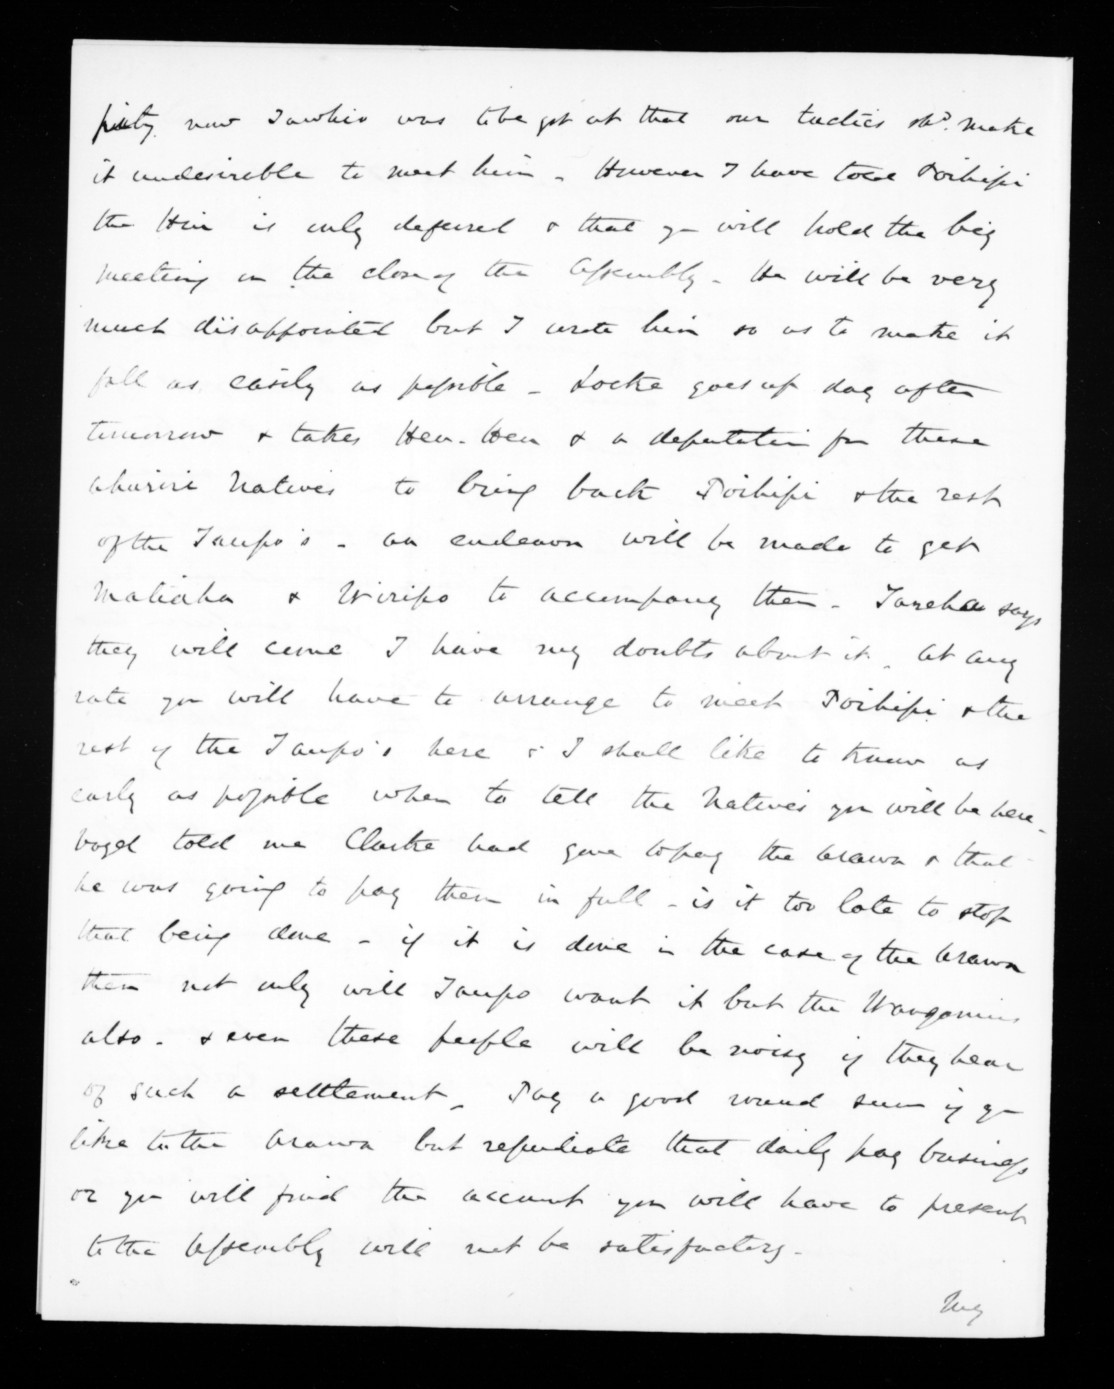 pity now Tawhio was to be got at that our tactics shd. make
it undesireble to meet him - However I have told Poihipi
the Hui is only deferred & that you will hold the big
meeting on the close of the Assembly - He will be very
much disappointed but I wrote him so as to make it
fall as easily as possible - Locke goes up day after
tomorrow & takes Hea-Hea & a deputation from these
Ahuriri Natives to bring back Poihipi & the rest
of the Taupo's - an endeavor will be made to get
Matiaha & Wiripo to accompany them - Tareha says
they will come I have my doubts about it. at any
rate you will have to arrange to meet Poihipi & the
rest of the Taupo's here & I shall like to know as
early as possible when to tell the Natives you will be here -
Vogel told me Clarke had gone to pay the Arawa & that
he was going to pay them in full - is it too late to stop
that being done - if it is done in the case of the Arawa
then not only will Taupo want it but the Wanganuis
also - & even these people will be noisy if they hear
of such a settlement - Pay a good round sum if you
like to the Arawa but repudiate that daily pay business
or you will find the account you will have to present
to the Assembly will not be satisfactory -
My